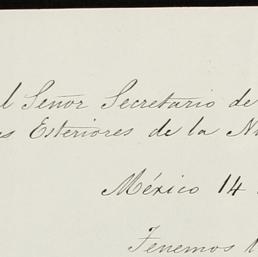 l Señor Secretario de
es Esteriores de la N
México 14
Tenemos